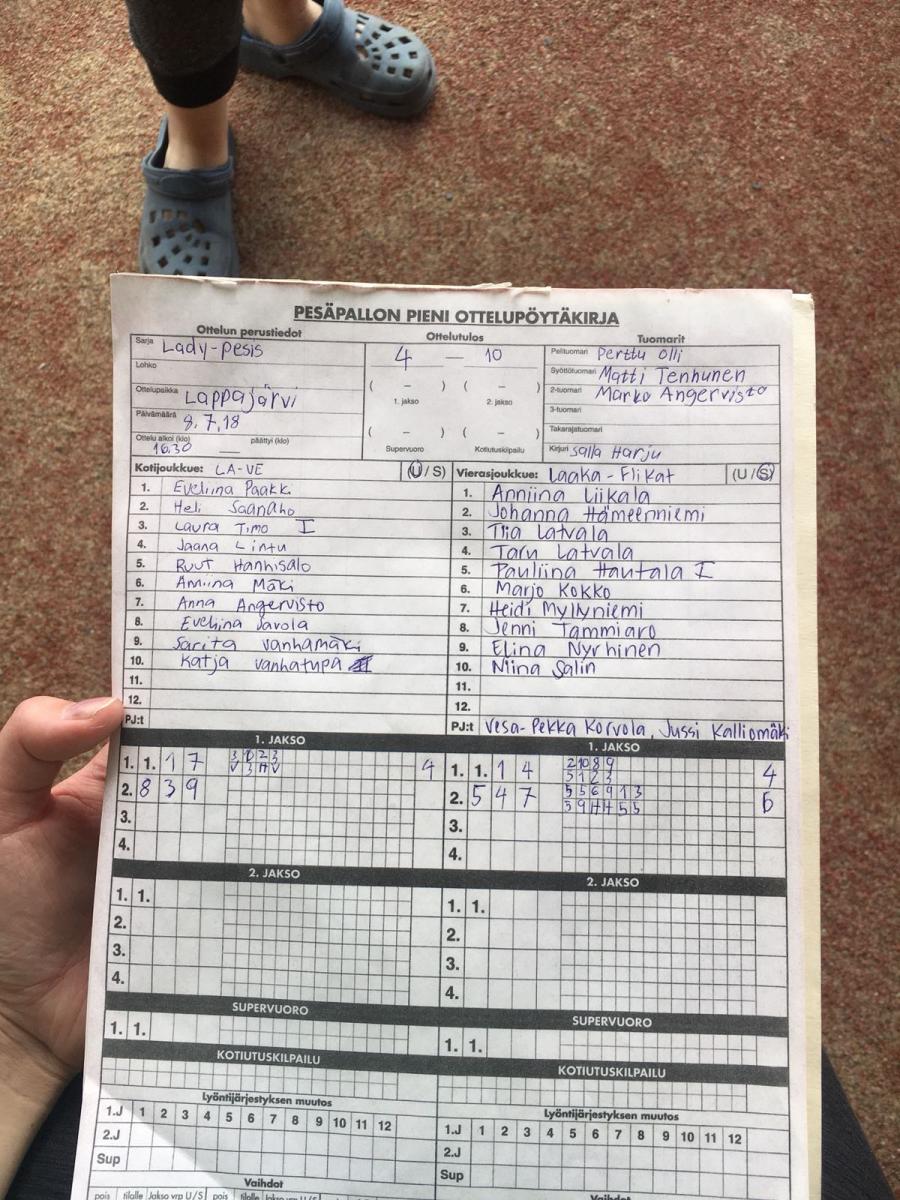 PESÄPALLON PIENI OTTELUPÖYTÄKIRJA
Ottelun perustiedot
Sarja Lady-pesis
Lohko
Ottelupaikka Lappajärvi
Päivämäärä 8.7.18
Ottelu alkoi (klo) päättyi (klo)
16.30 —
Ottelutulos
4 — 10
( – ) ( – )
1. jakso 2. jakso
( – ) ( – )
Supervuoro Kotiutuskilpailu
Tuomarit
Pelituomari Perttu Olli
Syöttötuomari Matti Tenhunen
2-tuomari Marko Angervisto
3-tuomari
Takarajatuomari
Kirjuri Salla Harju
Kotijoukkue: LA-VE (U / S)
1. Eveliina Paakki
2. Heli Saanaho
3. Laura Timo I
4. Jaana Lintu
5. Ruut Hanhisalo
6. Amiina Mäki
7. Anna Angervisto
8. Eveliina Savola
9. Sarita Vanhamäki
10. Katja Vanhatupa
11.
12.
PJ:t
Vierasjoukkue: Laaka-Flikat (U / S)
1. Anniina Liikala
2. Johanna Hämeenniemi
3. Tiia Latvala
4. Taru Latvala
5. Pauliina Hautala I
6. Marjo Kokko
7. Heidi Myllyniemi
8. Jenni Tammiaro
9. Elina Nyrhinen
10. Niina Salin
11.
12.
PJ:t Vesa-Pekka Korvola, Jussi Kalliomäki
1. JAKSO
1. 1. 1 7 4
2. 8 3 9
3.
4.
1. JAKSO
1. 1. 1 4 2 10 8 9 4
5 1 2 3
2. 5 4 7 5 5 6 9 1 3 6
5 9 H H 5 5
3.
4.
2. JAKSO
1. 1.
2.
3.
4.
2. JAKSO
1. 1.
2.
3.
4.
SUPERVUORO
1. 1.
SUPERVUORO
1. 1.
KOTIUTUSKILPAILU
KOTIUTUSKILPAILU
Lyöntijärjestyksen muutos
1.J 1 2 3 4 5 6 7 8 9 10 11 12
2.J
Sup
Lyöntijärjestyksen muutos
1.J 1 2 3 4 5 6 7 8 9 10 11 12
2.J
Sup
Vaihdot
pois tilalle Jakso vrp U/S pois tilalle Jakso vrp U/S
Vaihdot